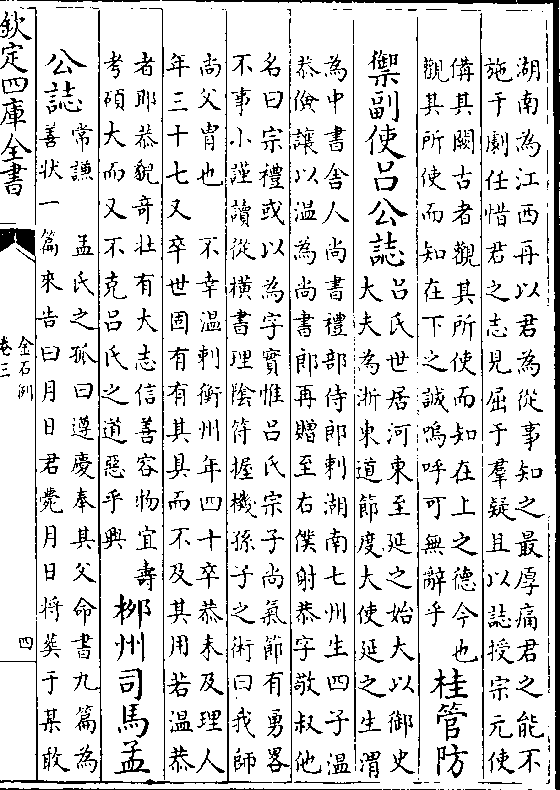 湖南為江西再以君為從事知之最厚痛君之能不
施于劇任惜君之志見屈于羣疑且以誌授宗元使
備其闕古者觀其所使而知在上之德今也
觀其所使而知在下之誠嗚呼可無辭乎
桂管防
禦副使吕公誌
吕氏世居河東至延之始大以御史
大夫為浙東道節度大使延之生渭
為中書舍人尚書禮部侍郎刺湖南七州生四子温
恭儉讓以温為尚書郎再贈至右僕射恭字敬叔他
名曰宗禮或以為字實惟吕氏宗子尚氣節有勇畧
不事小謹讀從橫書理陰符握機孫子之術曰我師
尚父胄也 不幸温刺衡州年四十卒恭未及理人
年三十七又卒世固有有其具而不及其用若温恭
者耶恭貌竒壯有大志信善容物宜壽
考碩大而又不克吕氏之道惡乎興
郴州司馬孟
公誌
常謙 孟氏之孤曰遵慶奉其父命書九篇為
善状一篇來告曰月日君薨月日將葬于某敢
欽定四庫全書
金石例
卷三
四